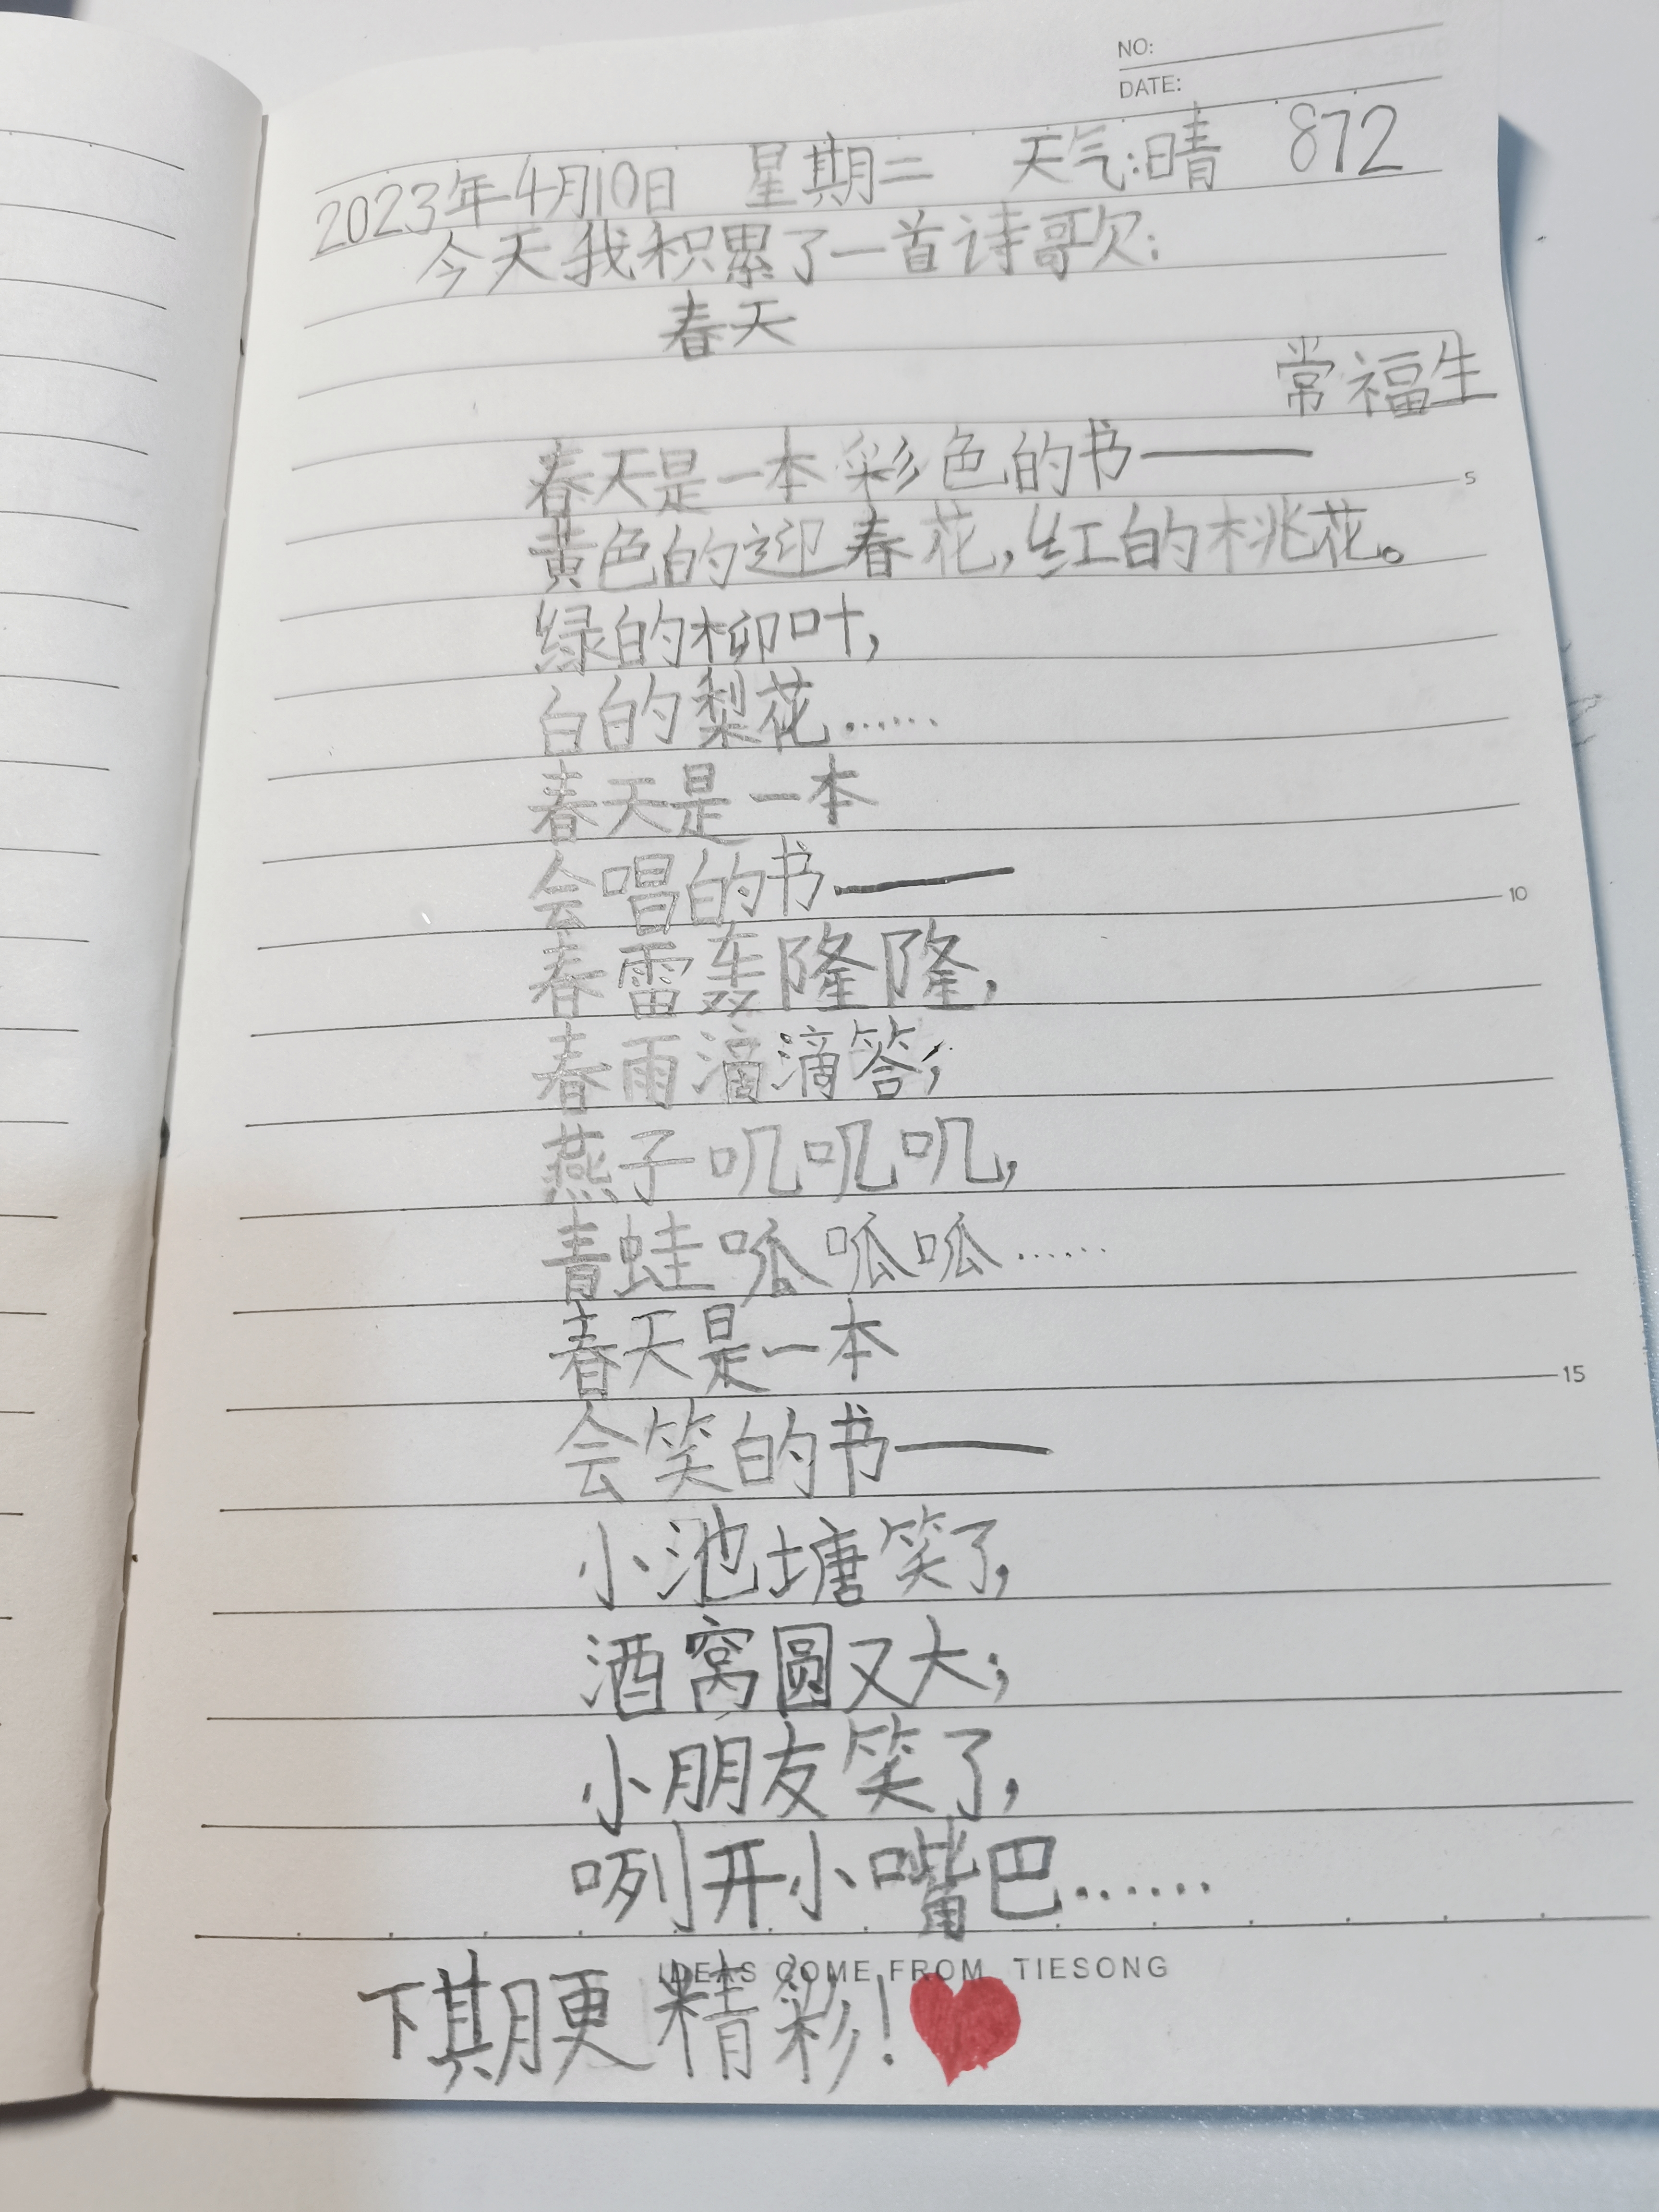 NO:
DATE:
2023年4月10日 星期二 天气:晴 872
今天我积累了一首诗歌:
春天
常福生
春天是一本彩色的书——
黄色的迎春花,红的桃花。
绿的柳叶,
白的梨花……
春天是一本
会唱的书——
春雷轰隆隆,
春雨滴滴答;
燕子叽叽叽,
青蛙呱呱呱……
春天是一本
会笑的书——
小池塘笑了,
酒窝圆又大;
小朋友笑了,
咧开小嘴巴……
IDEAS COME FROM TIESONG
下期更精彩!
5
10
15